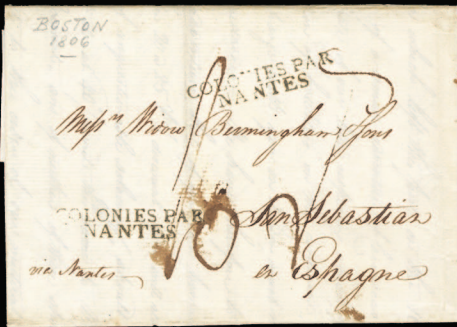 BOSTON
1806
COLONIES PAR
NANTES
Messrs Widow Birmingham & Sons
COLONIES PAR
NANTES
San Sebastian
via Nantes
en Espagne